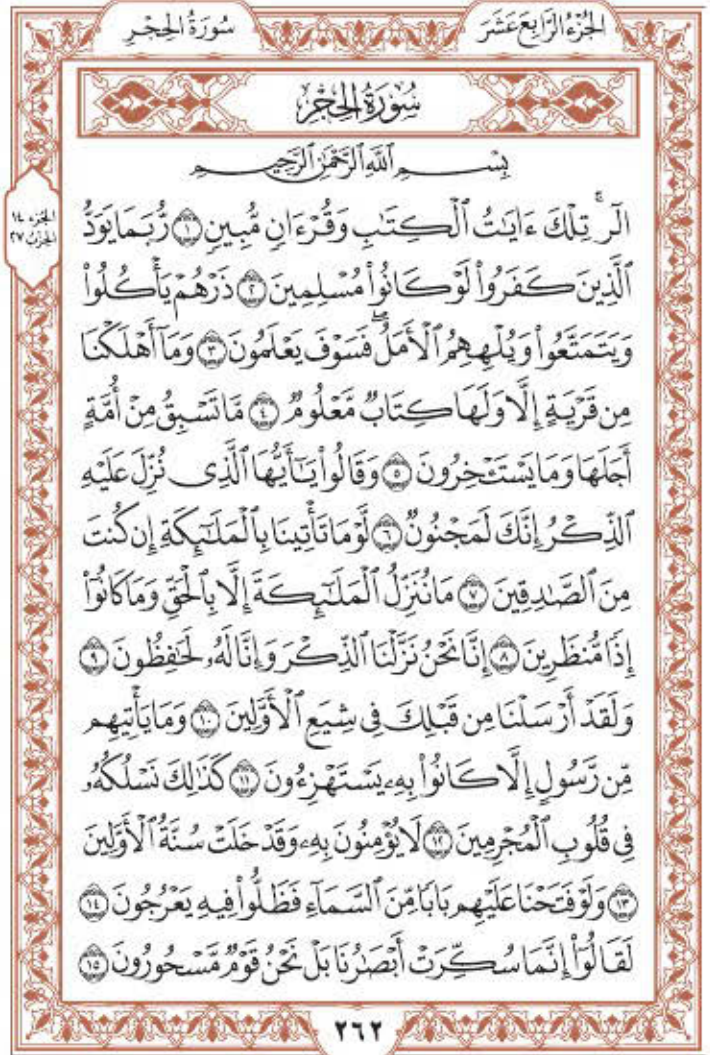 الجُزْءُ الرَّابِعَ عَشَرَ سُورَةُ الحِجْرِ
سُورَةُ الحِجْرِ
بِسْمِ ٱللَّهِ ٱلرَّحْمَٰنِ ٱلرَّحِيمِ
الجزء ١٤
الحزب ٢٧
الٓرۚ تِلْكَ ءَايَٰتُ ٱلْكِتَٰبِ وَقُرْءَانٖ مُّبِينٖ ١ رُّبَمَا يَوَدُّ
ٱلَّذِينَ كَفَرُواْ لَوْ كَانُواْ مُسْلِمِينَ ٢ ذَرْهُمْ يَأْكُلُواْ
وَيَتَمَتَّعُواْ وَيُلْهِهِمُ ٱلْأَمَلُۖ فَسَوْفَ يَعْلَمُونَ ٣ وَمَآ أَهْلَكْنَا
مِن قَرْيَةٍ إِلَّا وَلَهَا كِتَابٞ مَّعْلُومٞ ٤ مَّا تَسْبِقُ مِنْ أُمَّةٍ
أَجَلَهَا وَمَا يَسْتَـْٔخِرُونَ ٥ وَقَالُواْ يَٰٓأَيُّهَا ٱلَّذِي نُزِّلَ عَلَيْهِ
ٱلذِّكْرُ إِنَّكَ لَمَجْنُونٞ ٦ لَّوْ مَا تَأْتِينَا بِٱلْمَلَٰٓئِكَةِ إِن كُنتَ
مِنَ ٱلصَّٰدِقِينَ ٧ مَا نُنَزِّلُ ٱلْمَلَٰٓئِكَةَ إِلَّا بِٱلْحَقِّ وَمَا كَانُوٓاْ
إِذٗا مُّنظَرِينَ ٨ إِنَّا نَحْنُ نَزَّلْنَا ٱلذِّكْرَ وَإِنَّا لَهُۥ لَحَٰفِظُونَ ٩
وَلَقَدْ أَرْسَلْنَا مِن قَبْلِكَ فِي شِيَعِ ٱلْأَوَّلِينَ ١٠ وَمَا يَأْتِيهِم
مِّن رَّسُولٍ إِلَّا كَانُواْ بِهِۦ يَسْتَهْزِءُونَ ١١ كَذَٰلِكَ نَسْلُكُهُۥ
فِي قُلُوبِ ٱلْمُجْرِمِينَ ١٢ لَا يُؤْمِنُونَ بِهِۦ وَقَدْ خَلَتْ سُنَّةُ ٱلْأَوَّلِينَ
١٣ وَلَوْ فَتَحْنَا عَلَيْهِم بَابٗا مِّنَ ٱلسَّمَآءِ فَظَلُّواْ فِيهِ يَعْرُجُونَ ١٤
لَقَالُوٓاْ إِنَّمَا سُكِّرَتْ أَبْصَٰرُنَا بَلْ نَحْنُ قَوْمٞ مَّسْحُورُونَ ١٥
٢٦٢